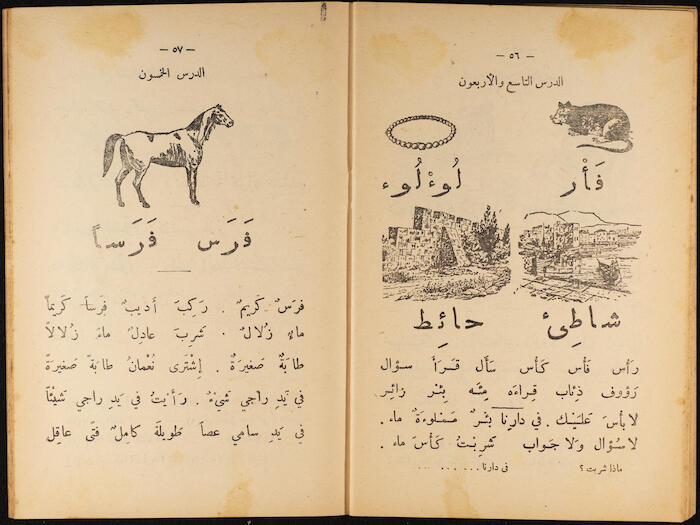 — ٥٦ —
الدرس التاسع والاربعون
فَأْر
لُوءْلُوء
شاطِئ
حائِط
رَأس فَأس كَأس سَأل قَرَأ سؤال
رَؤوف ذِئاب قِراءَه مِئَه بِئر زائِر
لا بأسَ عَلَيْك . في دارِنا بئرٌ مَملوءةٌ ماء .
لا سُؤال ولا جواب شَرِبْتُ كَأسَ ماء .
ماذا شربت ؟ في دارنا . . . . . . .
— ٥٧ —
الدرس الخمسون
فَرَس فَرَساً
فَرسٌ كَريمٌ . رَكِبَ أديبٌ فَرساً كَريماً
ماءٌ زُلالٌ . شَرِبَ عادلٌ ماءً زُلالاً
طابَةٌ صَغيرَةٌ . إشْتَرى نُعْمانُ طابَةً صَغيرَةً
في يَدِ راجي شَيْءٌ . رَأيْتُ في يَدِ راجي شَيْئاً
في يَدِ سامي عصاً طَويلَة كامِلٌ فتًى عاقِل